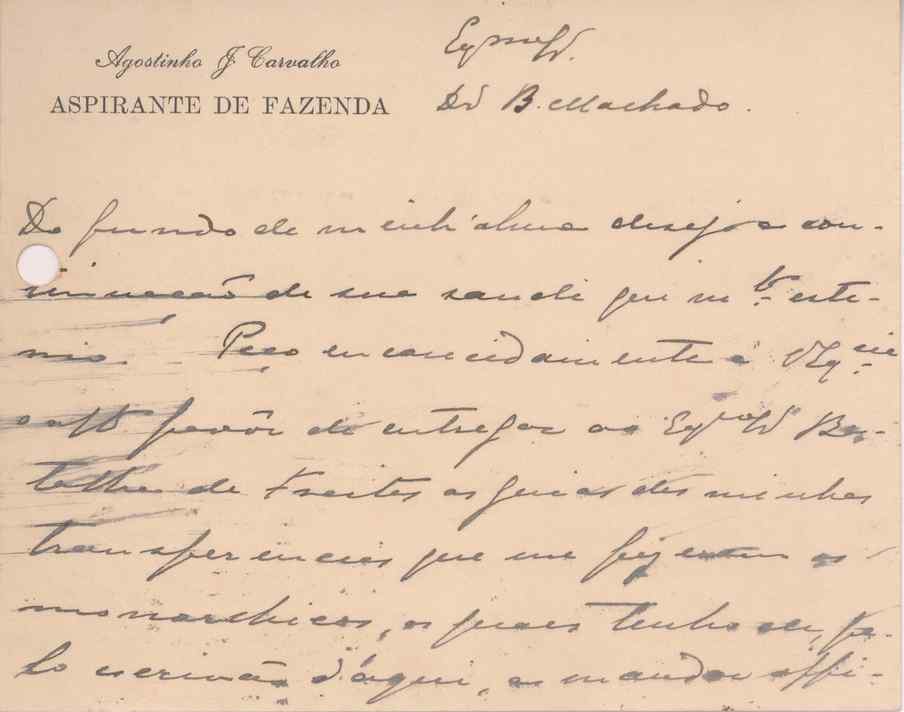 Agostinho J. Carvalho
ASPIRANTE DE FAZENDA
Exmo Sr.
Dr B. Machado.
Do fundo de minh'alma desejo a con-
tinuação de sua saude que mto esti-
mo. Peço encarecidamente a V Excia
o favôr de entregar ao Exmo Sr Bo-
telho de Freitas as guias das minhas
transferencias que me fizeram os
monarchicos, as quaes tenho de, pe-
lo escrivão d'aqui, as mandou offi-